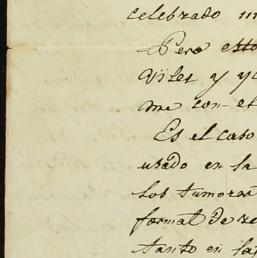 celebrado
Pero esto
viles y yo
me con es
Es el caso
usado en la
los tumora
format de re
tanto en la